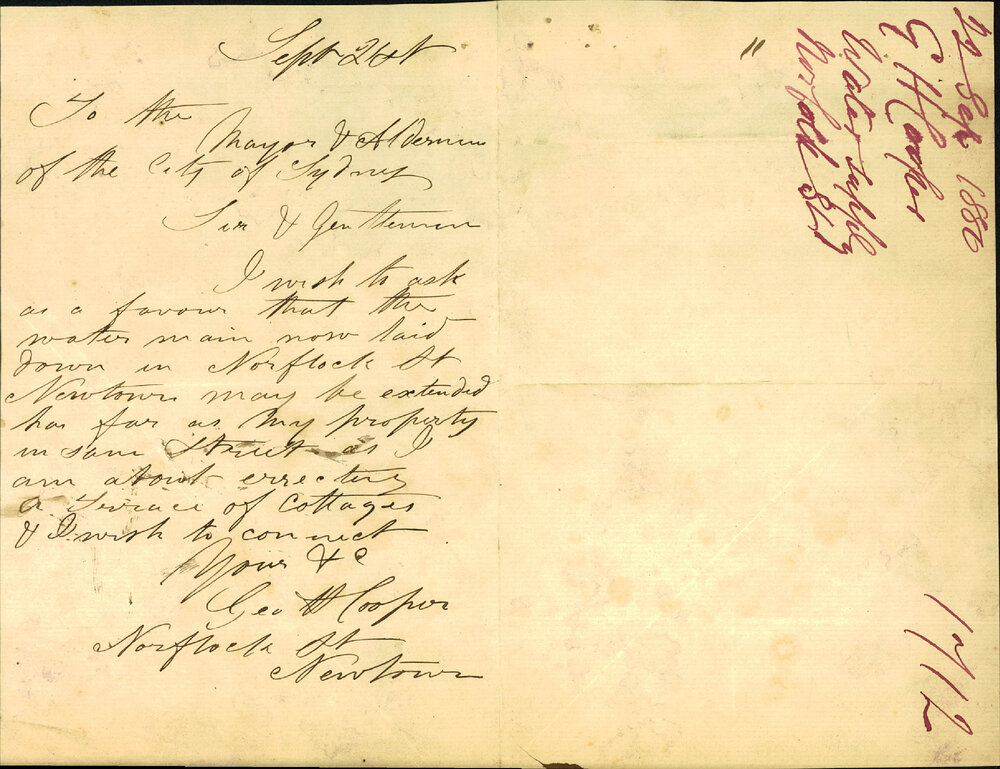 Sept 21st
To the
Mayor & Aldermin
of the City of Sydney
Sir & Gentlemen
I wish to ask
as a favour that the
water main now laid
down in Norflock St
Newtown may be extended
has far as My property
in same Street as I
am about errecting
a Terrace of Cottages
& I wish to connect
Yours &c
Geo H Cooper
Norflock St
Newtown
"
Sep 1880
G H Cooper
Water supply
Norfolk St